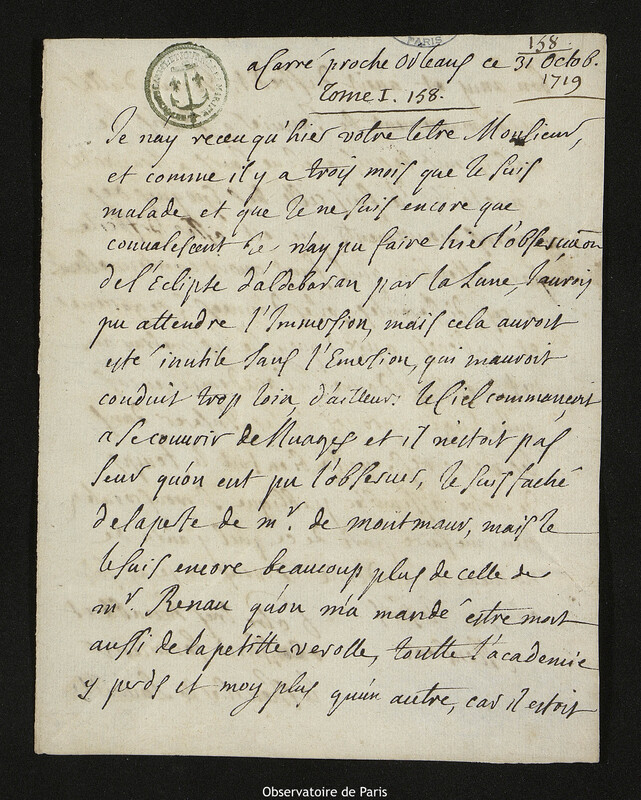 158.
PARIS
a Carré proche Orleans ce 31 Octob.
1719
Tome I. 158.
Je nay receu qu'hier votre letre Monsieur,
et comme il y a trois mois que je suis
malade et que je ne suis encore que
convalescent je n'ay pu faire hier l'observaōn
de l'Eclipse d'aldebaran par la Lune, j'aurois
pu attendre l'Immersion, mais cela auroit
esté inutile sans l'Emersion, qui m'auroit
conduit trop loin, d'ailleurs le Ciel commançoit
a se couvrir de Nuages et il n'estoit pas
seur qu'on eut pu l'observer, je suis faché
de la perte de mr. de montmaur, mais je
le suis encore beaucoup plus de celle de
mr. Renau qu'on m'a mandé estre mort
aussi de la petitte verolle, toutte l'academie
y perds et moy plus qu'un autre, car il estoit
Observatoire de Paris